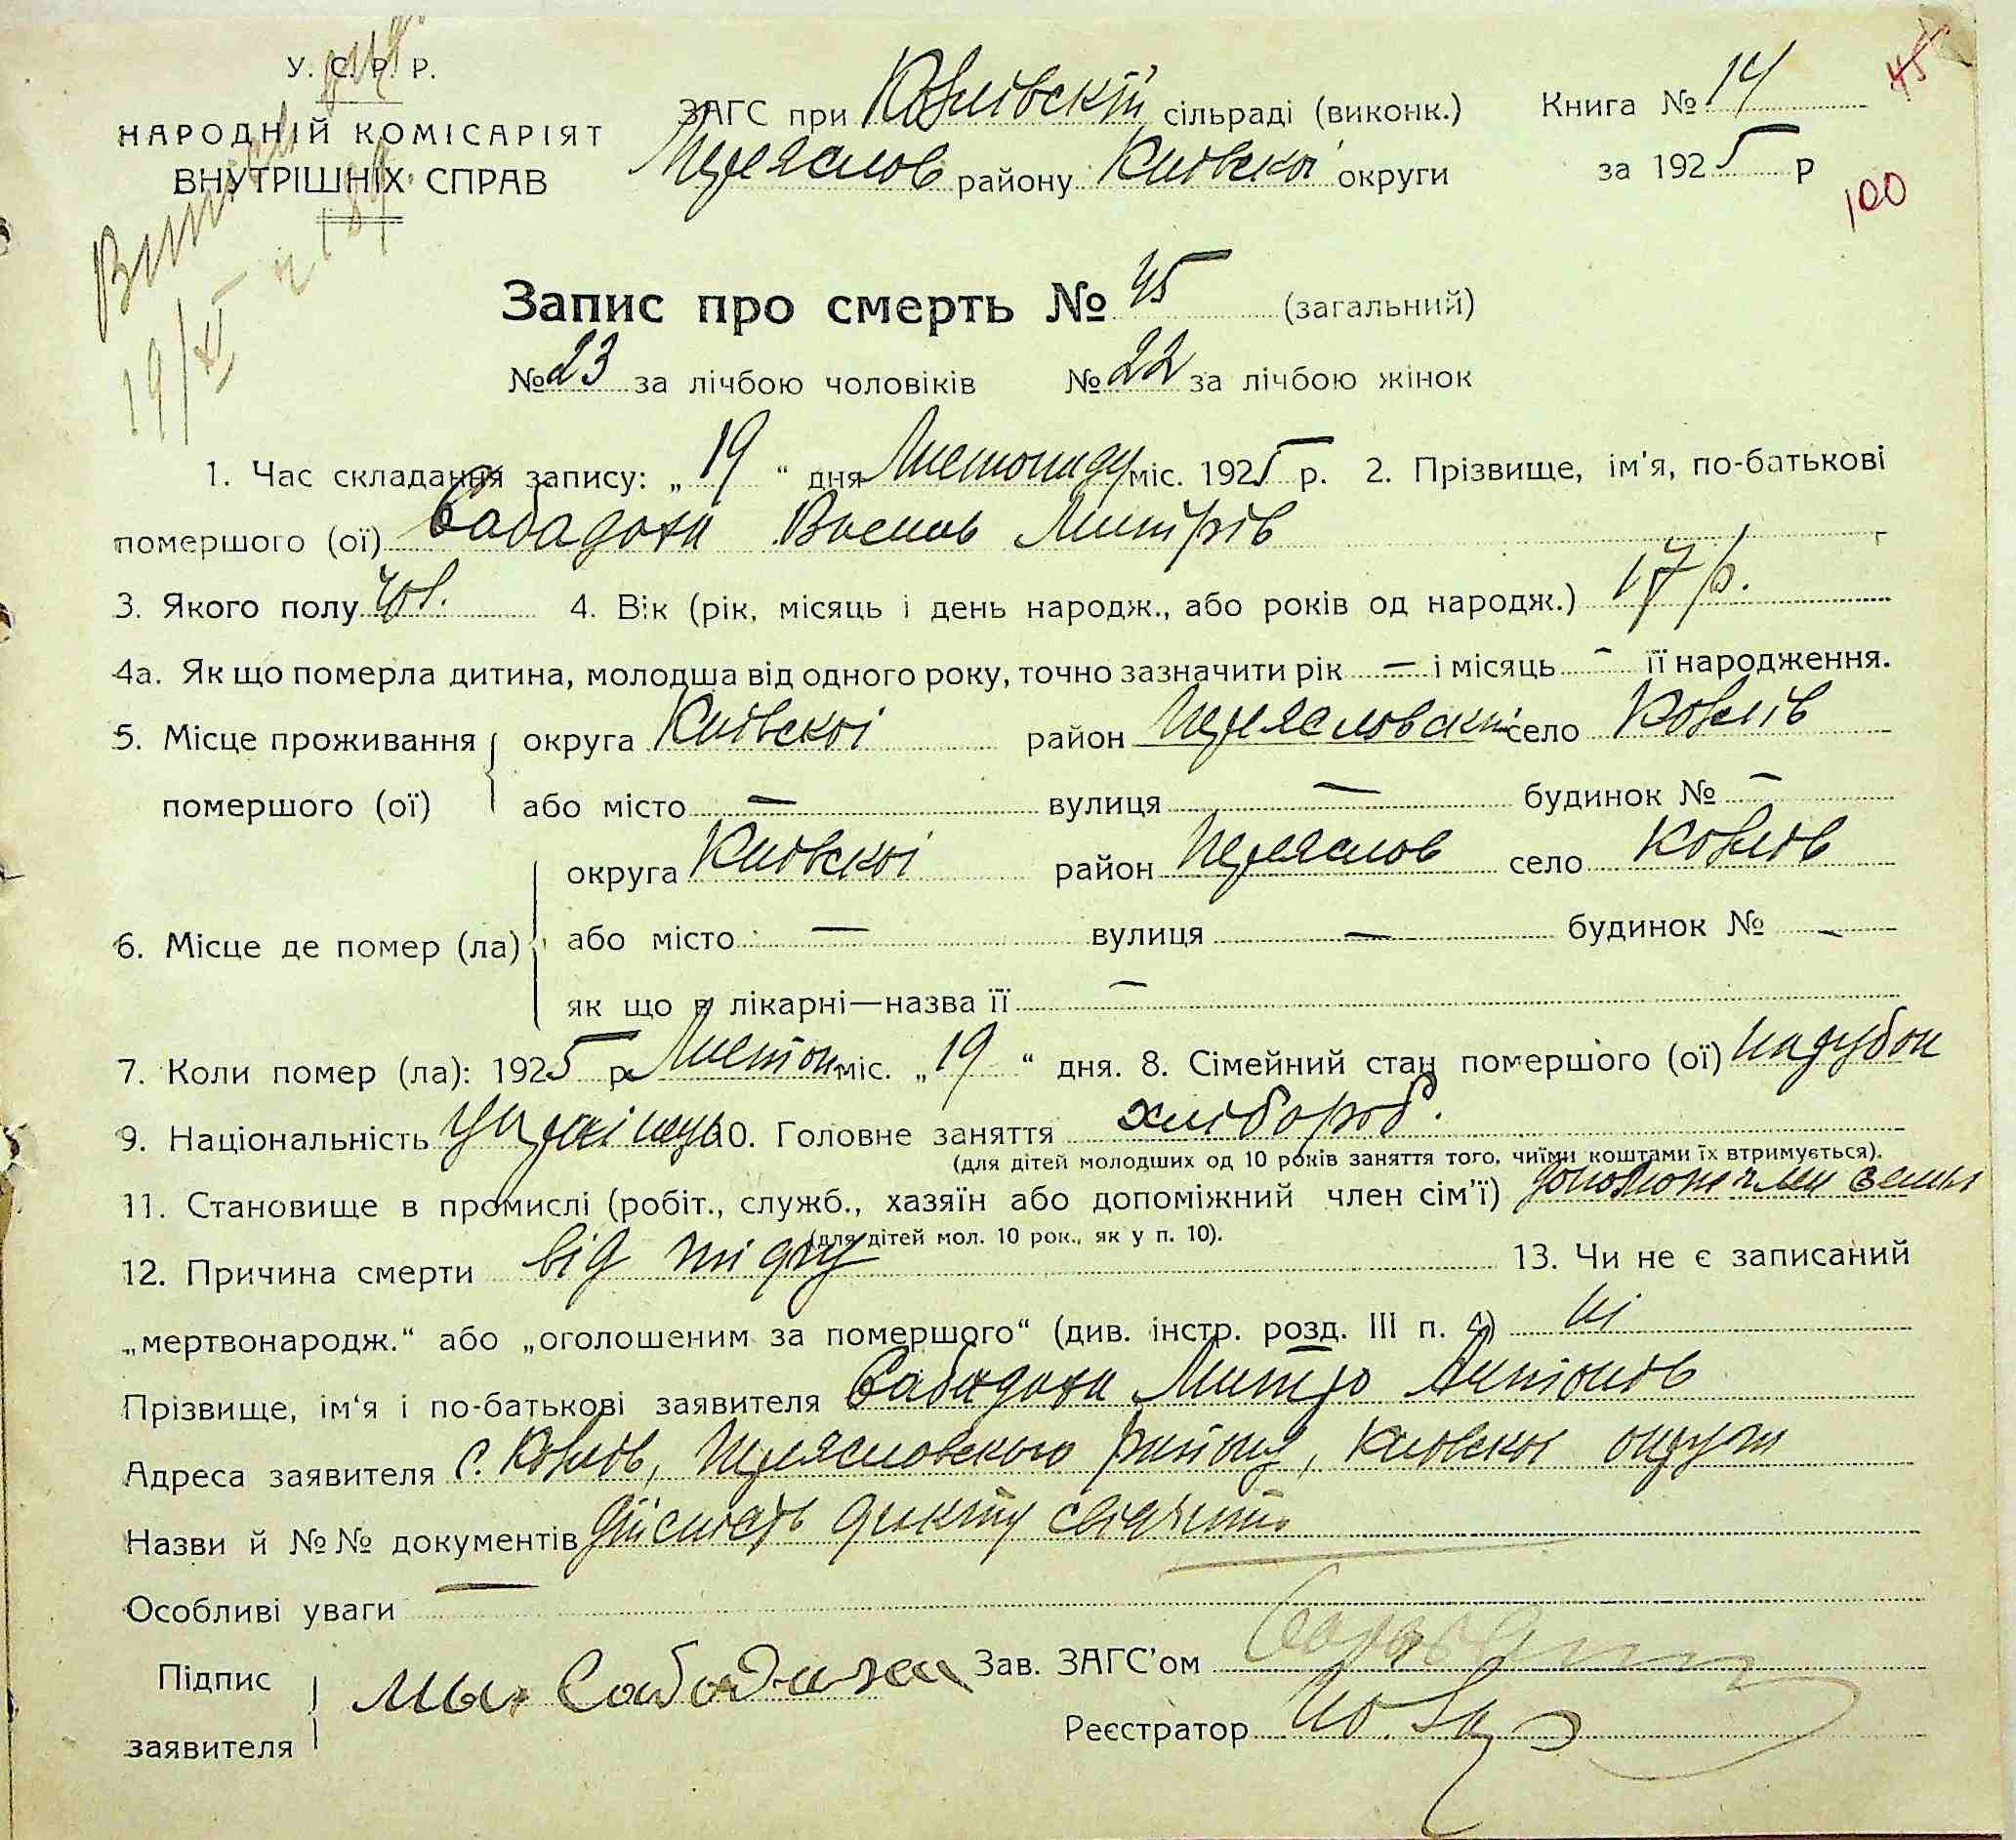 У. С. Р. Р.
НАРОДНІЙ КОМІСАРІЯТ
ВНУТРІШНІХ СПРАВ
ЗАГС при Козлівскій сільраді (виконк.) Книга № 14
Переяслов району Київскоі округи за 1925 р
45
100
19/XI
Запис про смерть № 45 (загальний)
№ 23 за лічбою чоловіків № 22 за лічбою жінок
1. Час складання запису: „ 19 “ дня Листопаду міс. 1925 р. 2. Прізвище, ім'я, по-батькові
помершого (ої) Сабадаха Василь Митрів
3. Якого полу чол. 4. Вік (рік, місяць і день народж., або років од народж.) 17 р.
4а. Як що померла дитина, молодша від одного року, точно зазначити рік — і місяць - її народження.
5. Місце проживання округа Київскоі район Переясловскій село Козлів
помершого (ої) або місто — вулиця — будинок № —
округа Київскоі район Переяслов село Козлів
6. Місце де помер (ла) або місто — вулиця — будинок № —
як що в лікарні—назва її —
7. Коли помер (ла): 1925 р. Листоп міс. „ 19 “ дня. 8. Сімейний стан помершого (ої) парубок
9. Національність україн 10. Головне заняття хлібороб.
(для дітей молодших од 10 років заняття того, чиїми коштами їх втримується).
11. Становище в промислі (робіт., служб., хазяїн або допоміжний член сім'ї) член семьі
(для дітей мол. 10 рок., як у п. 10).
12. Причина смерти від тифу 13. Чи не є записаний
„мертвонародж.“ або „оголошеним за помершого“ (див. інстр. розд. III п. 4) ні
Прізвище, ім'я і по-батькові заявителя Сабадаха Митро Антонів
Адреса заявителя с. Козлів, Переясловского району, Київскоі округи
Назви й №№ документів дійсність факту
Особливі уваги —
Підпис Сабадаха Зав. ЗАГС'ом
Реєстратор
заявителя